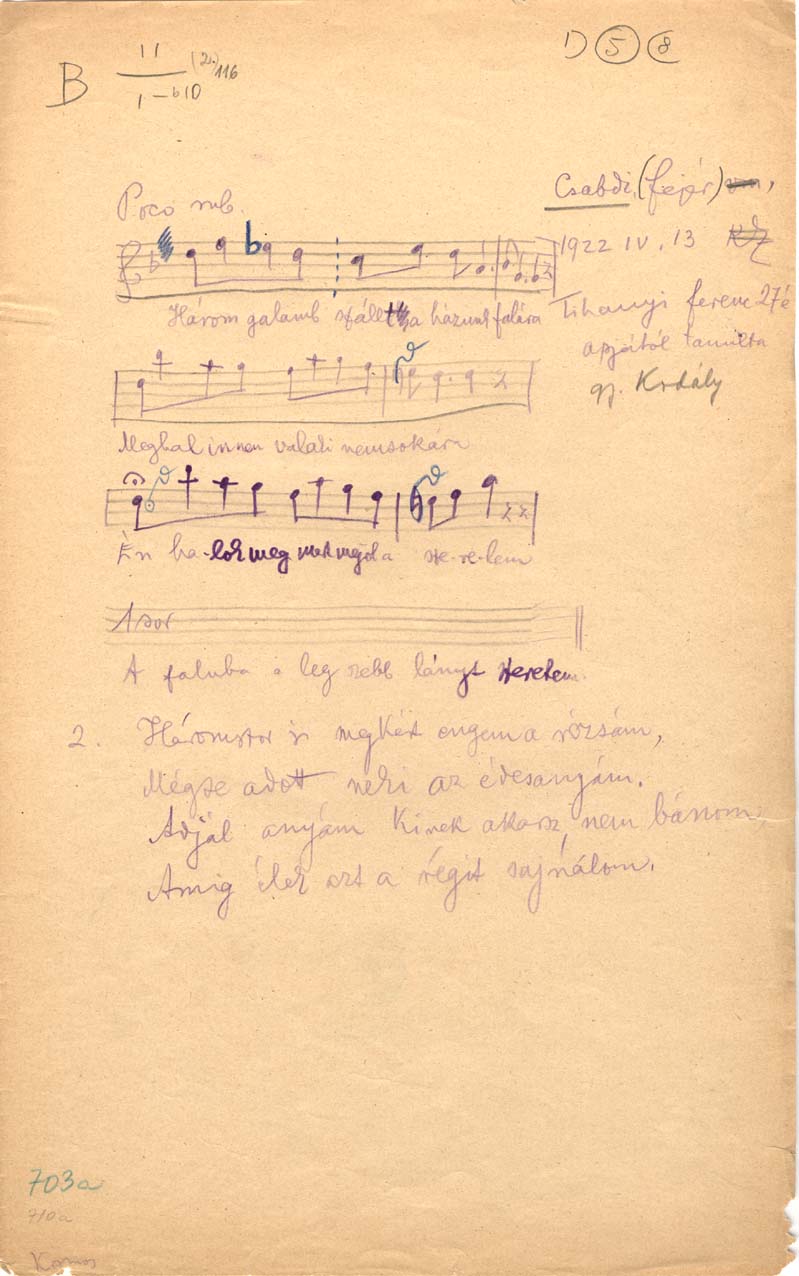 B 11 (2.) 116
1 – b10
1) 5 8
Poco rub.
Csabdi, (Fejér)
1922 IV. 13
Tihanyi Ferenc 27é
apjától tanulta
gy. Kodály
Három galamb szállt a házunk falára
Meghal innen valaki nemsokára
Én ha-lok meg mert megöl a sze-re-lem
1 sor
A faluba a leg szebb lányt szeretem.
2. Háromszor is megkért engem a rózsám,
Mégse adott neki az édesanyám.
Adjál anyám kinek akarsz, nem bánom,
Amig élek ezt a régit sajnálom.
703a
710a